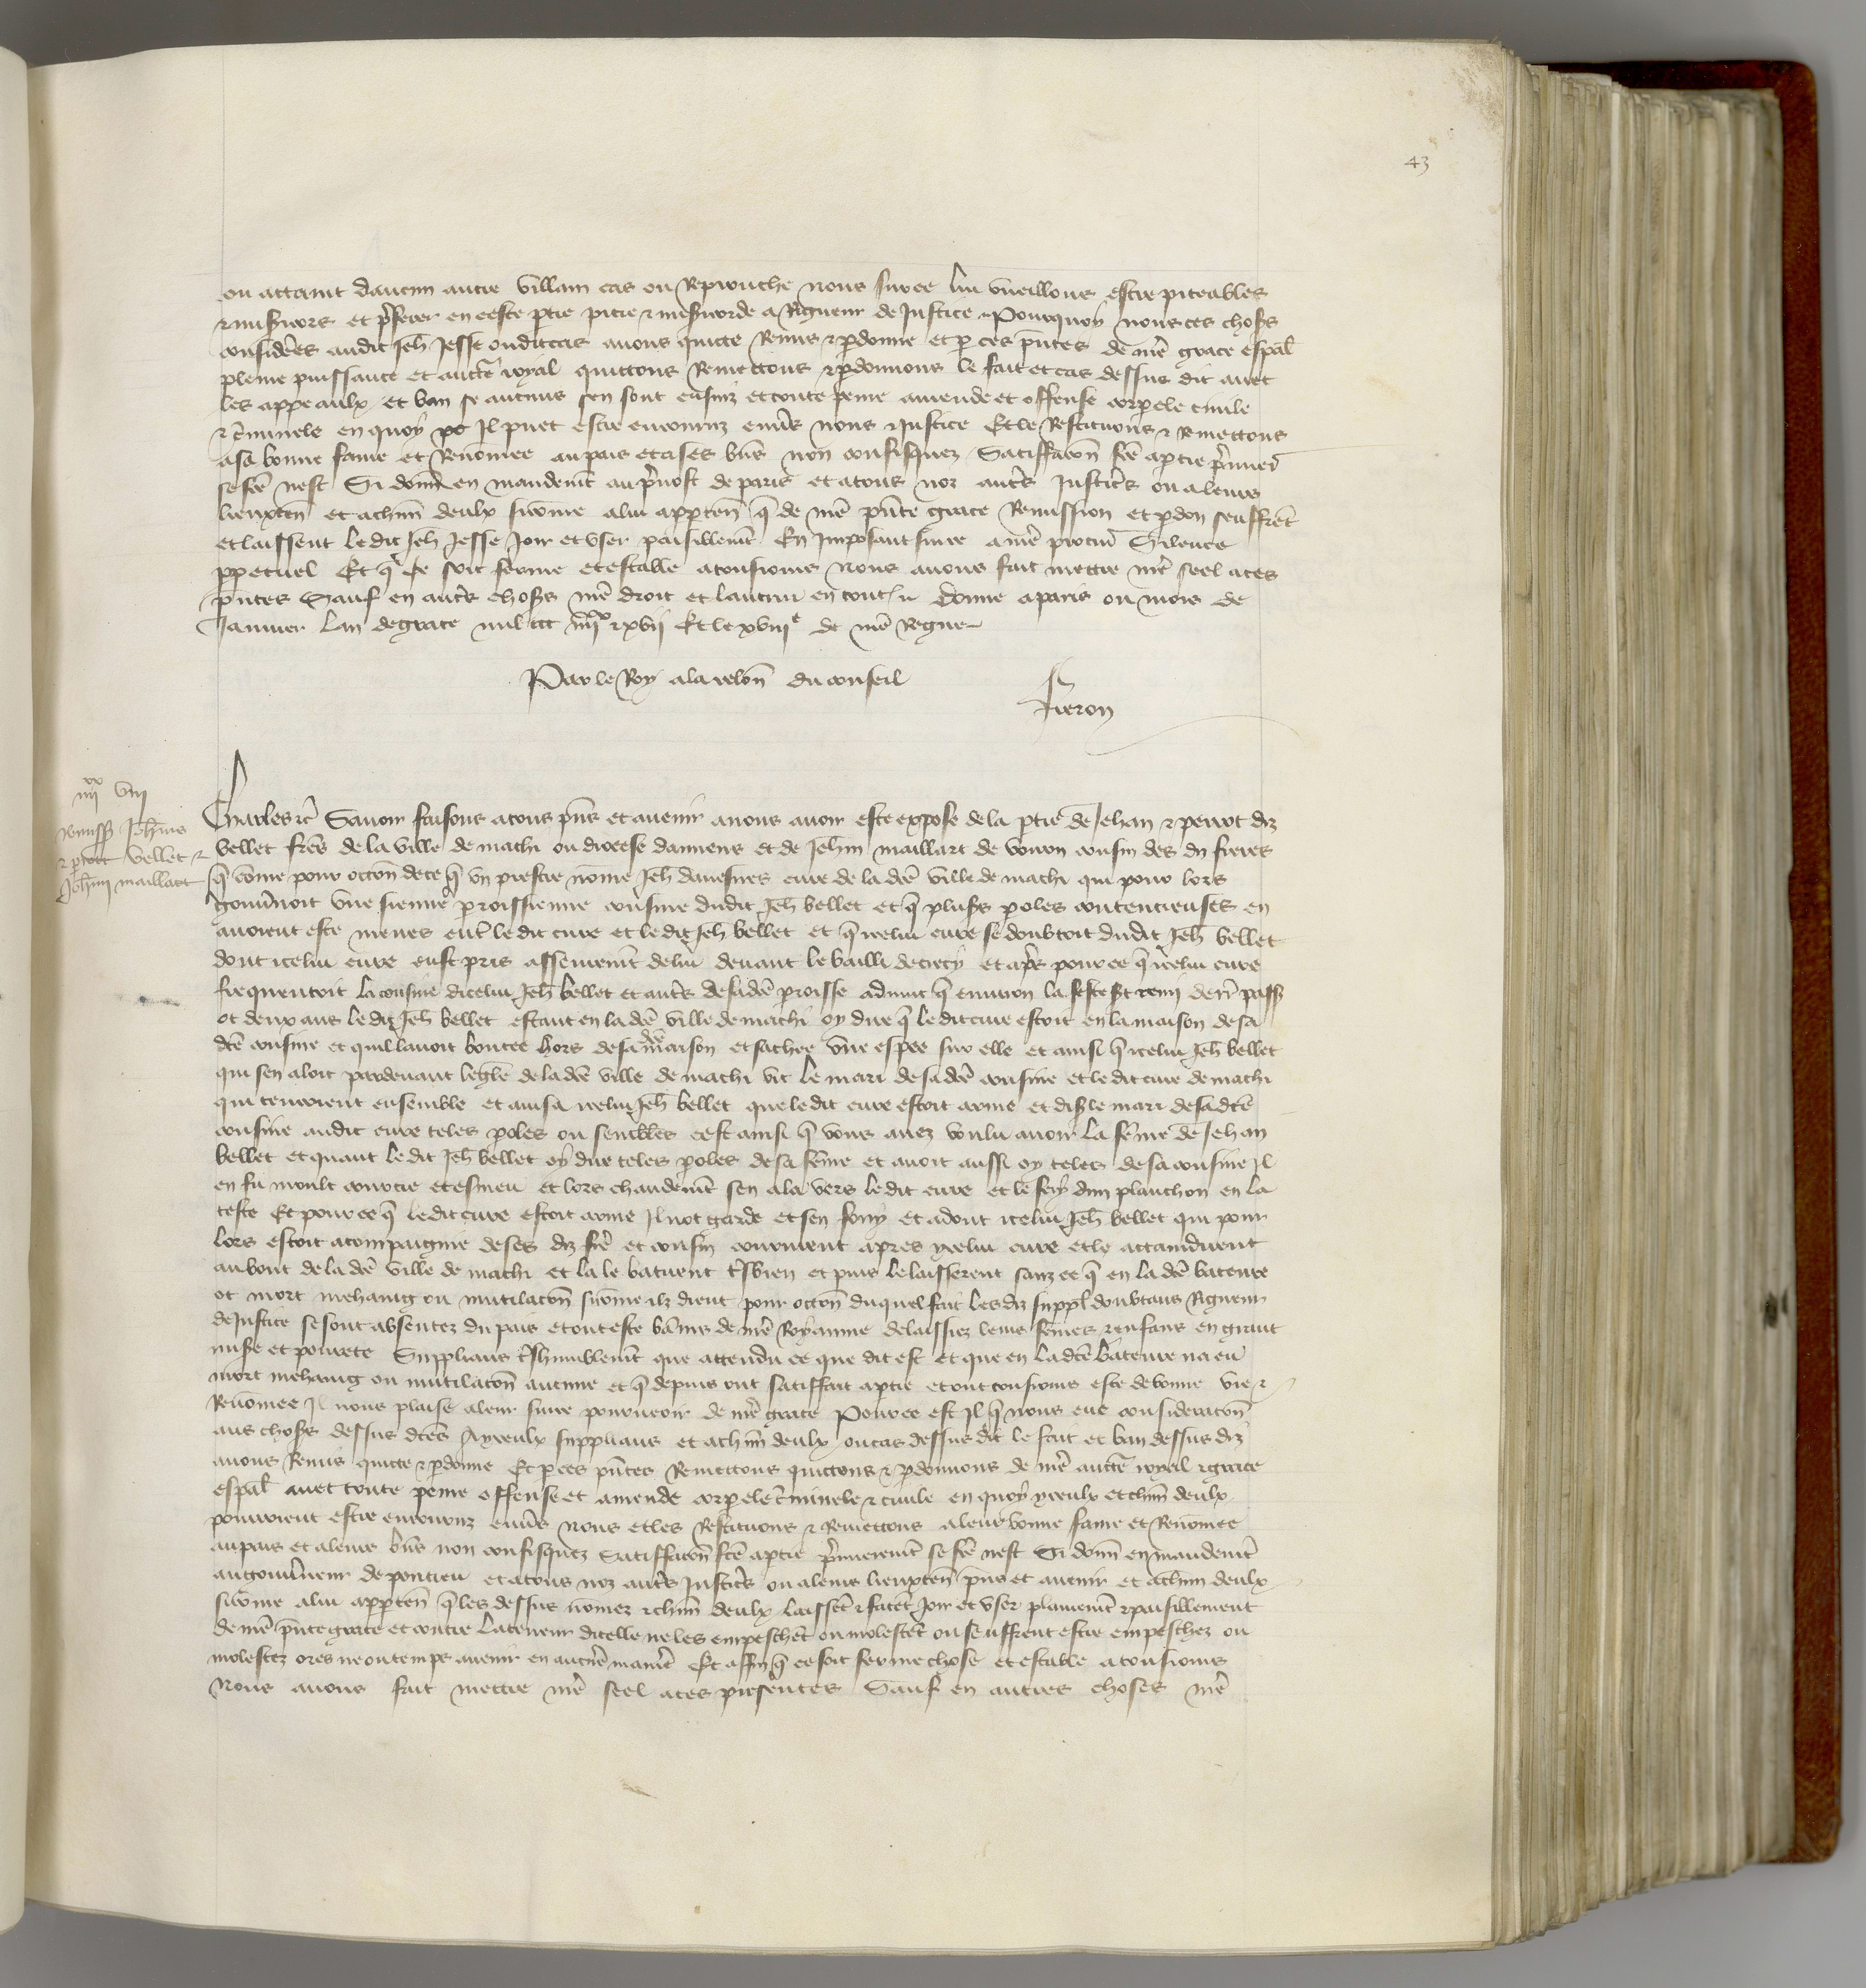 43
ou attaint daucun autre villain cas ou Reprouche nous sur ce lui vueillons estre piteables
& mis͛icors et p͛ferer en ceste ꝑtie pitie & mis͛icorde a Rigueur de Justice Pourquoy nous ces choses
consid͛ees audit Jeh̅ Jesse ou dit cas auons quicte Remis & ꝑdonne et ꝑ ces pn̅tes de nr̅e grace esp̅al
pleine puissance et auctte͛ royal quittons Remettons & ꝑdonnons le fait et cas dessus dit auec
les appeaulx et ban se aucuns sen sont ensuiz et toute peine amende et offense corporele ciuile
& c͛minele en quoy Il puet estre encouruz enu͛s nous & Justice Et le Restituons & Remettons
a sa bonne fame et Reno̅mee au pais et a ses bn̅s non confisquez Satiffac̅on fc̅e a ꝑtie p͛mier
se fc̅e nest Si donn̅ en mandem̅t au p͛uost de paris et a tous noz aut͛s Justic͛s ou a leurs
lieuxten̅ et a ch̅un deulx si co̅me a lui apparten̅ q̅ de nr̅e pn̅te grace Remission et ꝑdon seuffrent
et laissent le dit Jeh̅ Jesse Joir et vser paisiblem̅t En Imposant sur ce a nr̅e procur̅ Silence
ꝑpetuel Et q̅ ce soit ferme et estable a tousiours nous auons fait mettre nr̅e seel a ces
pn̅tes Sauf en aut͛s choses nr̅e droit et lautrui en toutes Donne a paris ou mois de
Januier Lan de grace mil ccc iiii^xx & xvij Et le xviij^e de nr̅e Regne
Par le Roy a la relon̅ du conseil
Freron
iiii^xx viij
Remiss͛ Joh̅nis
& perroti Bellet &
Joh̅nin maillart
Charles &c͛ Sauoir faisons a tous pn̅s et auenir a nous auoir este expose de la ꝑtie de Jehan & perrot diz
bellet freres de la ville de machi ou diocese damiens et de Jeh̅nin maillart de cousin des diz freres
q̅ co̅me pour occon̅ de ce q̅ vn prestre no̅me Jeh̅ dauesnes cure de la dc̅e ville de machi qui pour lors
gouu͛noit vne sienne ꝑroissienne cousine dudit Jeh̅ bellet et q̅ plus͛s ꝑoles contencieuses en
auoient este menes ent͛ le dit cure et le dit Jeh̅ bellet et q̅ icelui cure se doubtoit dudit Jeh̅ bellet
dont icelui cure eust pris assseurem̅t de lui deuant le bailli de crecy et ap͛s pour ce q̅ icelui cure
frequentoit la cousine dicelui Jeh̅ bellet et aut͛s de sa dc̅e ꝑroisse aduint q̅ enuiron la feste St remi derr̅ pass͛
ot deux ans le dit Jeh̅ bellet estant en la dc̅e ville de machi oy dire q̅ le dit cure estoit en la maison de sa
dc̅e cousine et quil lauoit boutee hors de sa dc̅e maison et sachee vne espee sur elle et ainsi q̅ icelui Jeh̅ bellet
qui sen aloit par deuant leglise de la dc̅e ville de machi vit le mari de sa dc̅e cousine et le dit cure de machi
qui tencoient ensemble et auisa icelui Jeh̅ bellet que le dit cure estoit arme et dis͛ le mari de sa dc̅e
cousine audit cure teles ꝑoles ou semblables cest ainsi q̅ vous auez voulu auoir la fe̅me de Jehan
bellet et quant le dit Jeh̅ bellet oy dire teles ꝑoles de sa fe̅me et auoit aussi oy teles de sa cousine Il
en fu moult courcie et esmeu et lors chaudem̅t sen ala vers le dit cure et le fery dun planchon en la
teste Et pour ce q̅ le dit cure estoit arme Il not garde et sen fouy et adont icelui Jeh̅ bellet qui pour
lors estoit acompaignie de ses diz fre͛ et cousin coururent apres ycelui cure et le attaindirent
au bout de la dc̅e ville de machi et la le batirent tr͛sbien et puis le laisserent sanz ce q̅ en la dc̅e bateure
ot mort mehaing ou mutilac̅on si co̅me ilz dient pour occon̅ duquel fait les diz suppl̅ doubtans Rigueur
de Justice se sont absentez du pais et ont este banis de nr̅e Royaume delaissiez leurs fe̅mes & enfans en grant
mis͛e et pourete Supplians tr͛shumblem̅t que attendu ce que dit est et que en la dc̅e bateure na eu
mort mehaing ou mutilac̅on aucune et q̅ depuis ont satiffait a ꝑtie et ont tousiours este de bonne vie &
Reno̅mee Il nous plaise a leur sur ce pourueoir de nr̅e grace Pour ce est Il q̅ nous eue considerac̅on
aus choses dessus dc̅es A yceulx supplians et a ch̅un deulx ou cas dessus dit le fait et ban dessus diz
auons Remis quicte & ꝑdonne Et ꝑ ces pn̅tes Remettons quictons & ꝑdonnons de nr̅e auctte͛ royal & grace
esp̅al auec toute peine offense et amende corporele c͛minele & ciuile en quoy yceulx et ch̅un deulx
pourroient estre encouruz enu͛s nous et les Restituons & Remettons a leur bonne fame et Reno̅mee
au pais et a leurs bn̅s non confisquez Satiffac̅on fc̅e a ꝑtie p͛mierem̅t se fc̅e nest Si donn̅ en mandem̅t
au gouu͛neur de pontieu et a tous noz aut͛s Justic͛s ou a leurs lieuxten̅ pn̅s et auenir et a ch̅un deulx
si co̅me a lui apparten̅ q̅ les dessus no̅mez & ch̅un deulx laissent & facent Joir et vser plainem̅t & paisiblement
de nr̅e pn̅te grace et contre la teneur dicelle ne les empeschent ou molestent ou seuffrent estre empeschez ou
molestez ores ne ou temps auenir en aucune maniere Et affin q̅ ce soit ferme chose et estable a tousiours
Nous auons fait mettre nr̅e seel a ces presentes Sauf en autres choses nr̅e